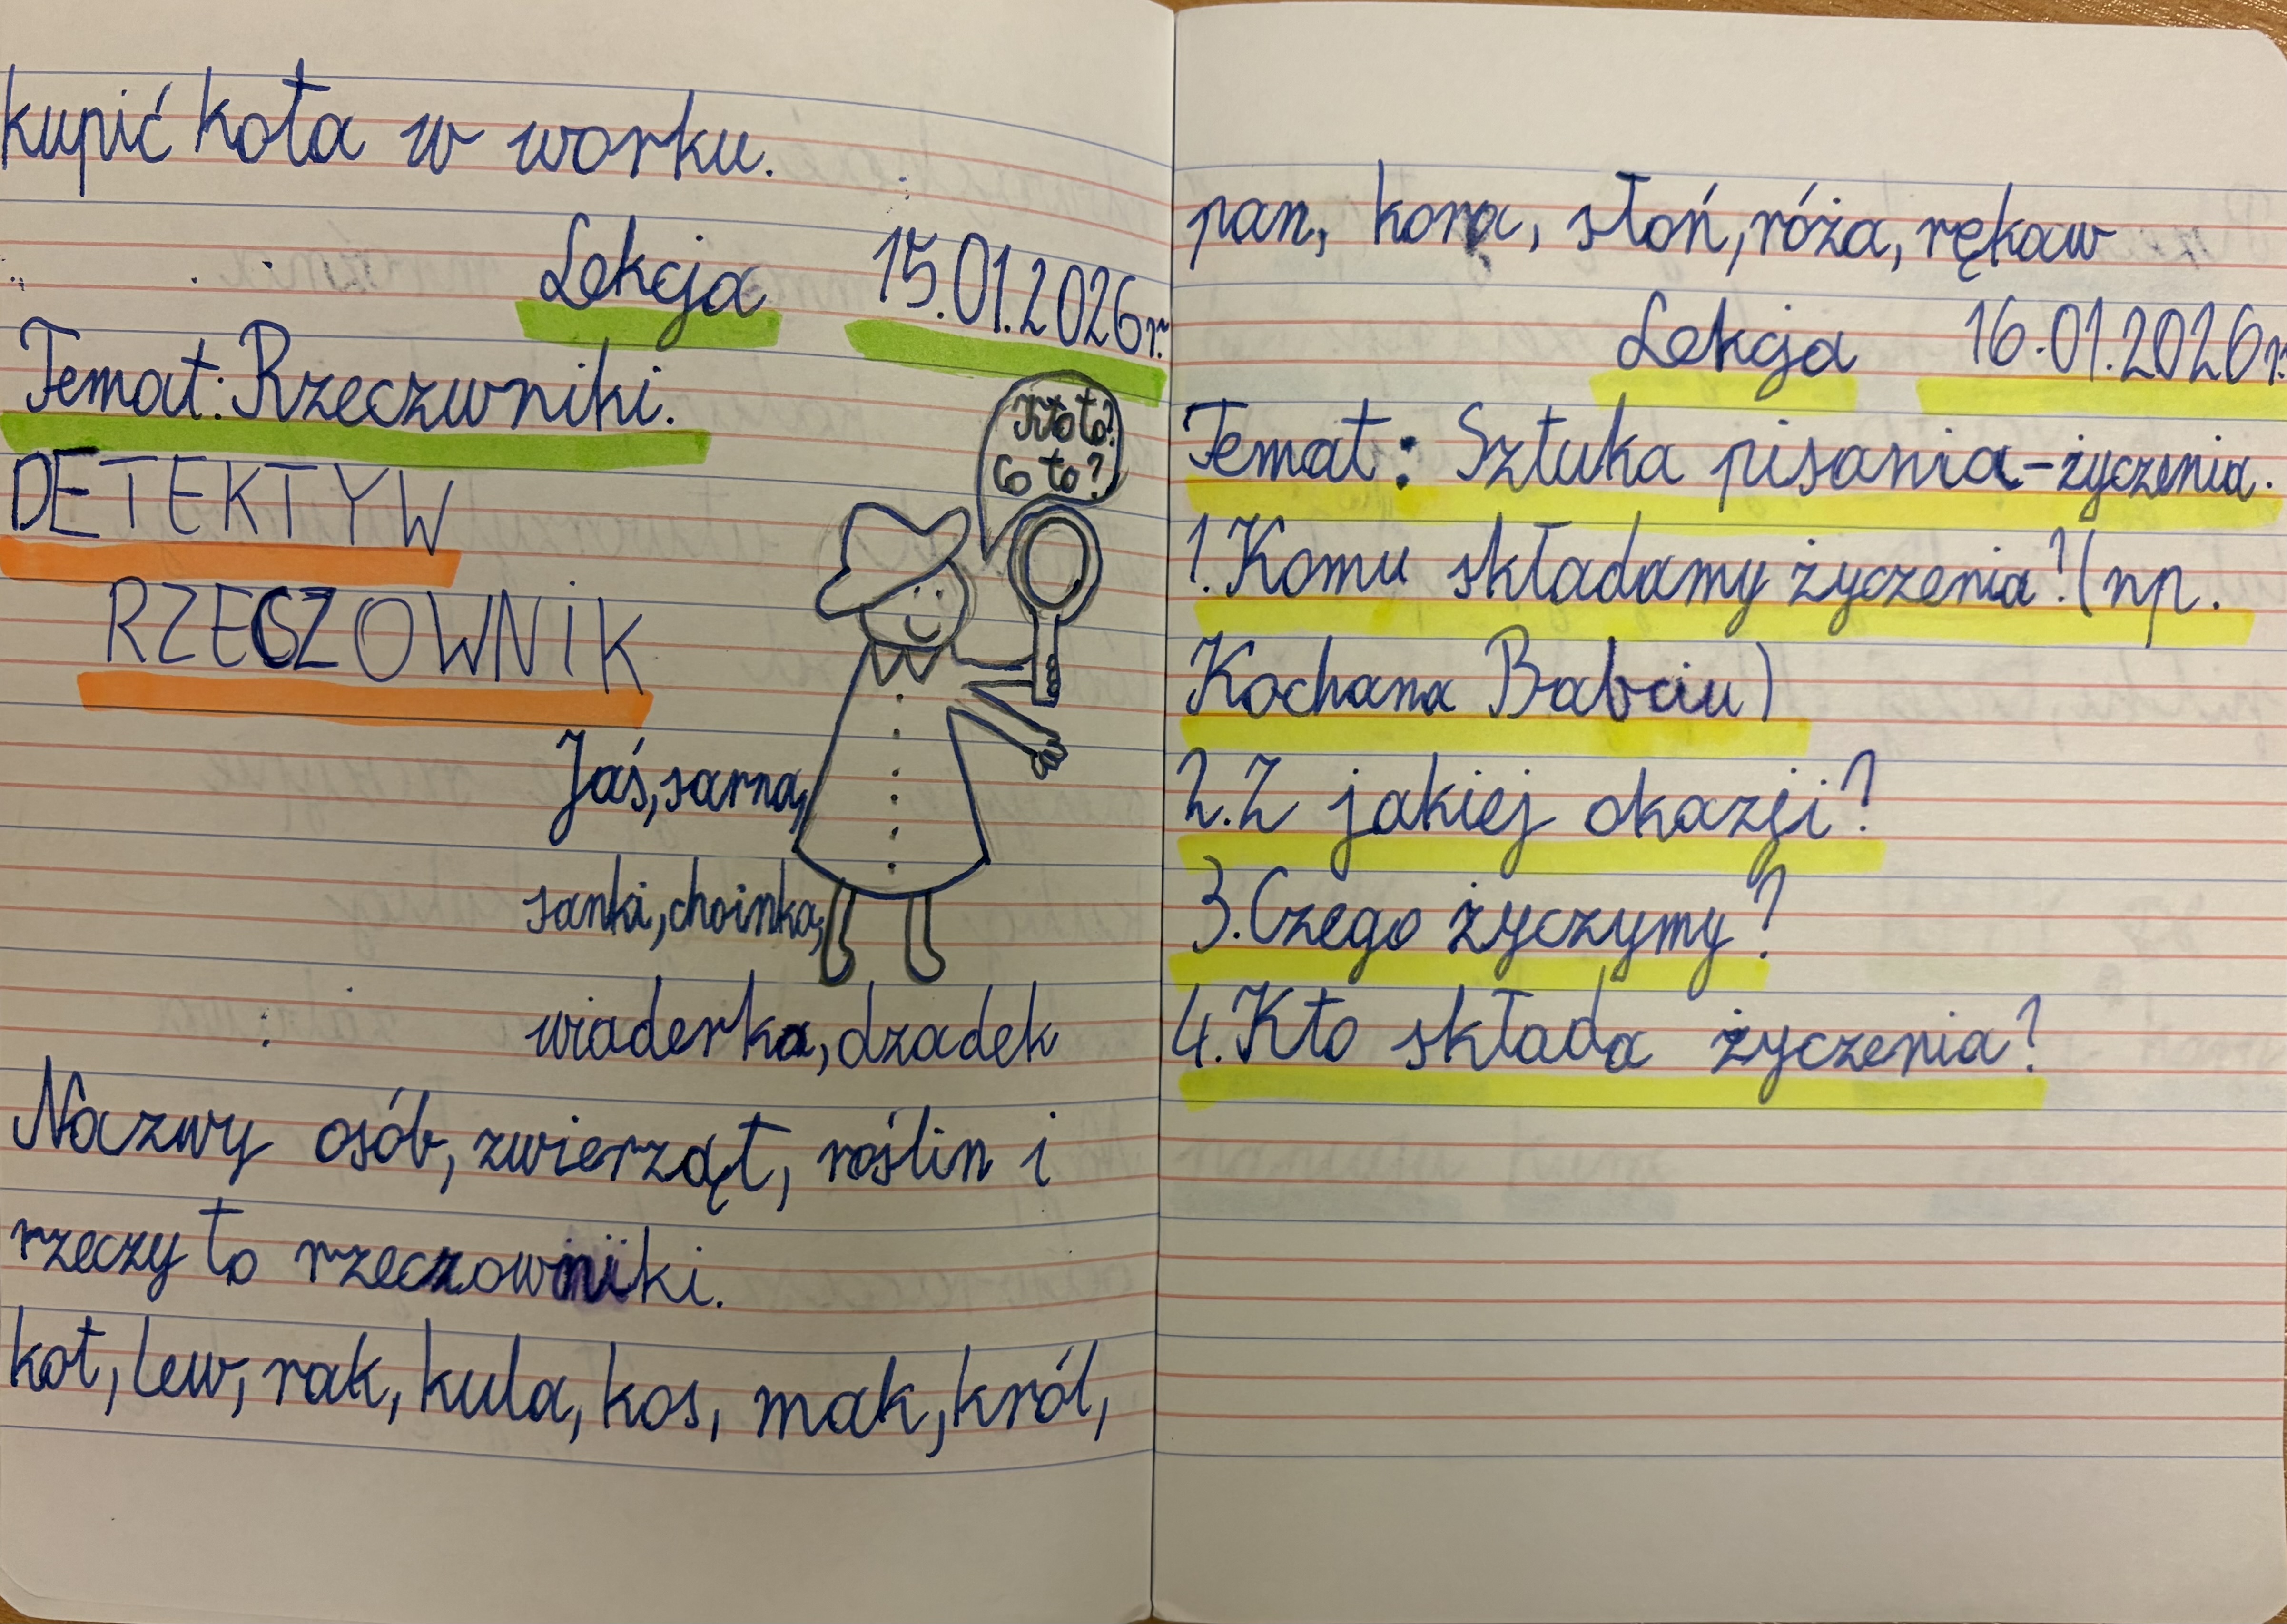 kupić kota w worku.
Lekcja 15.01.2026r.
Temat: Rzeczwniki.
Kto to?
Co to?
DETEKTYW
RZECZOWNIK
Jaś, sarna,
sanki, choinka,
wiaderka, dzadek
Nazwy osób, zwierząt, roślin i
rzeczy to rzeczowniki.
kot, lew, rak, kula, kos, mak, król,
pan, kora, słoń, róża, rękaw
Lekcja 16.01.2026r.
Temat: Sztuka pisania - życzenia.
1. Komu składamy życzenia? (np.
Kochana Babciu)
2. Z jakiej okazji?
3. Czego życzymy?
4. Kto składa życzenia?